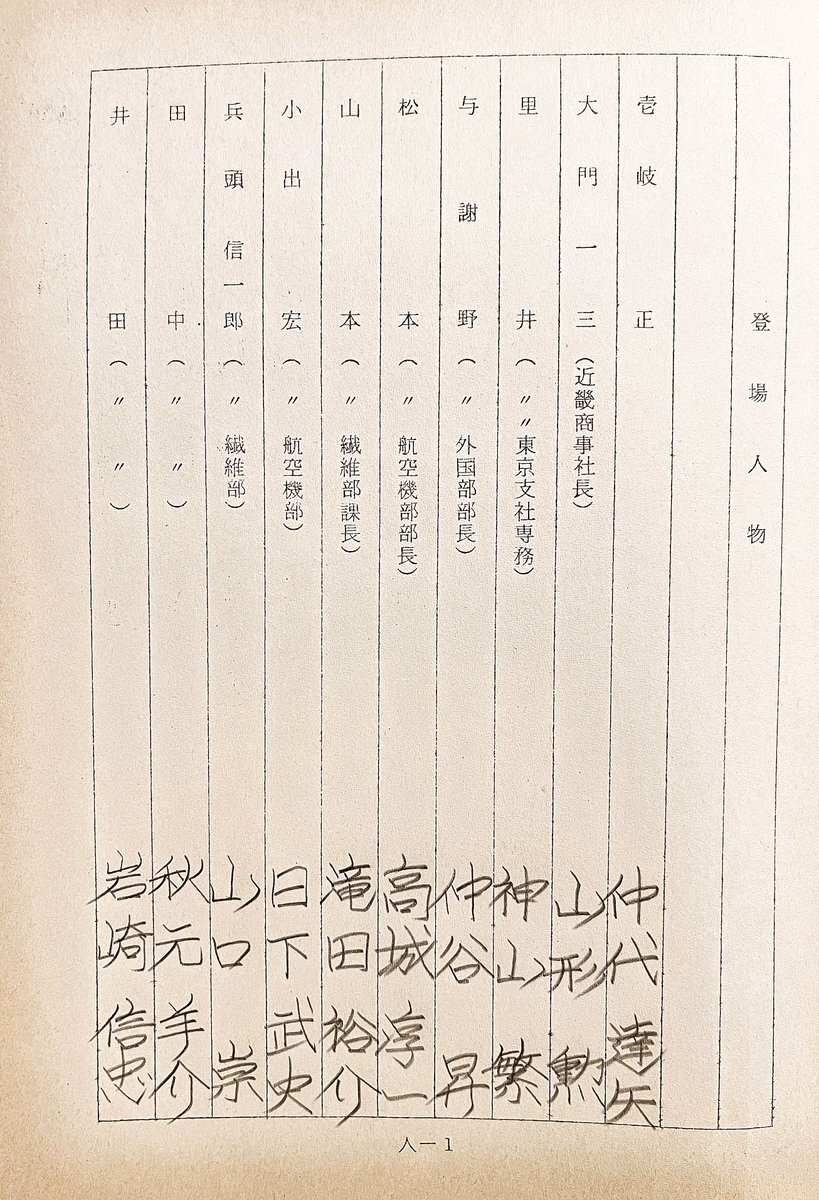 登場人物
壱岐正 仲代達矢
大門一三（近畿商事社長） 山形勲
里井（〃〃東京支社専務） 神山繁
与謝野（〃外国部部長） 仲谷昇
松本（〃航空機部部長） 高城淳一
山本（〃繊維部課長） 滝田裕介
小出宏（〃航空機部） 日下武史
兵頭信一郎（〃繊維部） 山口崇
田中（〃〃） 秋元羊介
井田（〃〃） 岩崎信忠
人－1